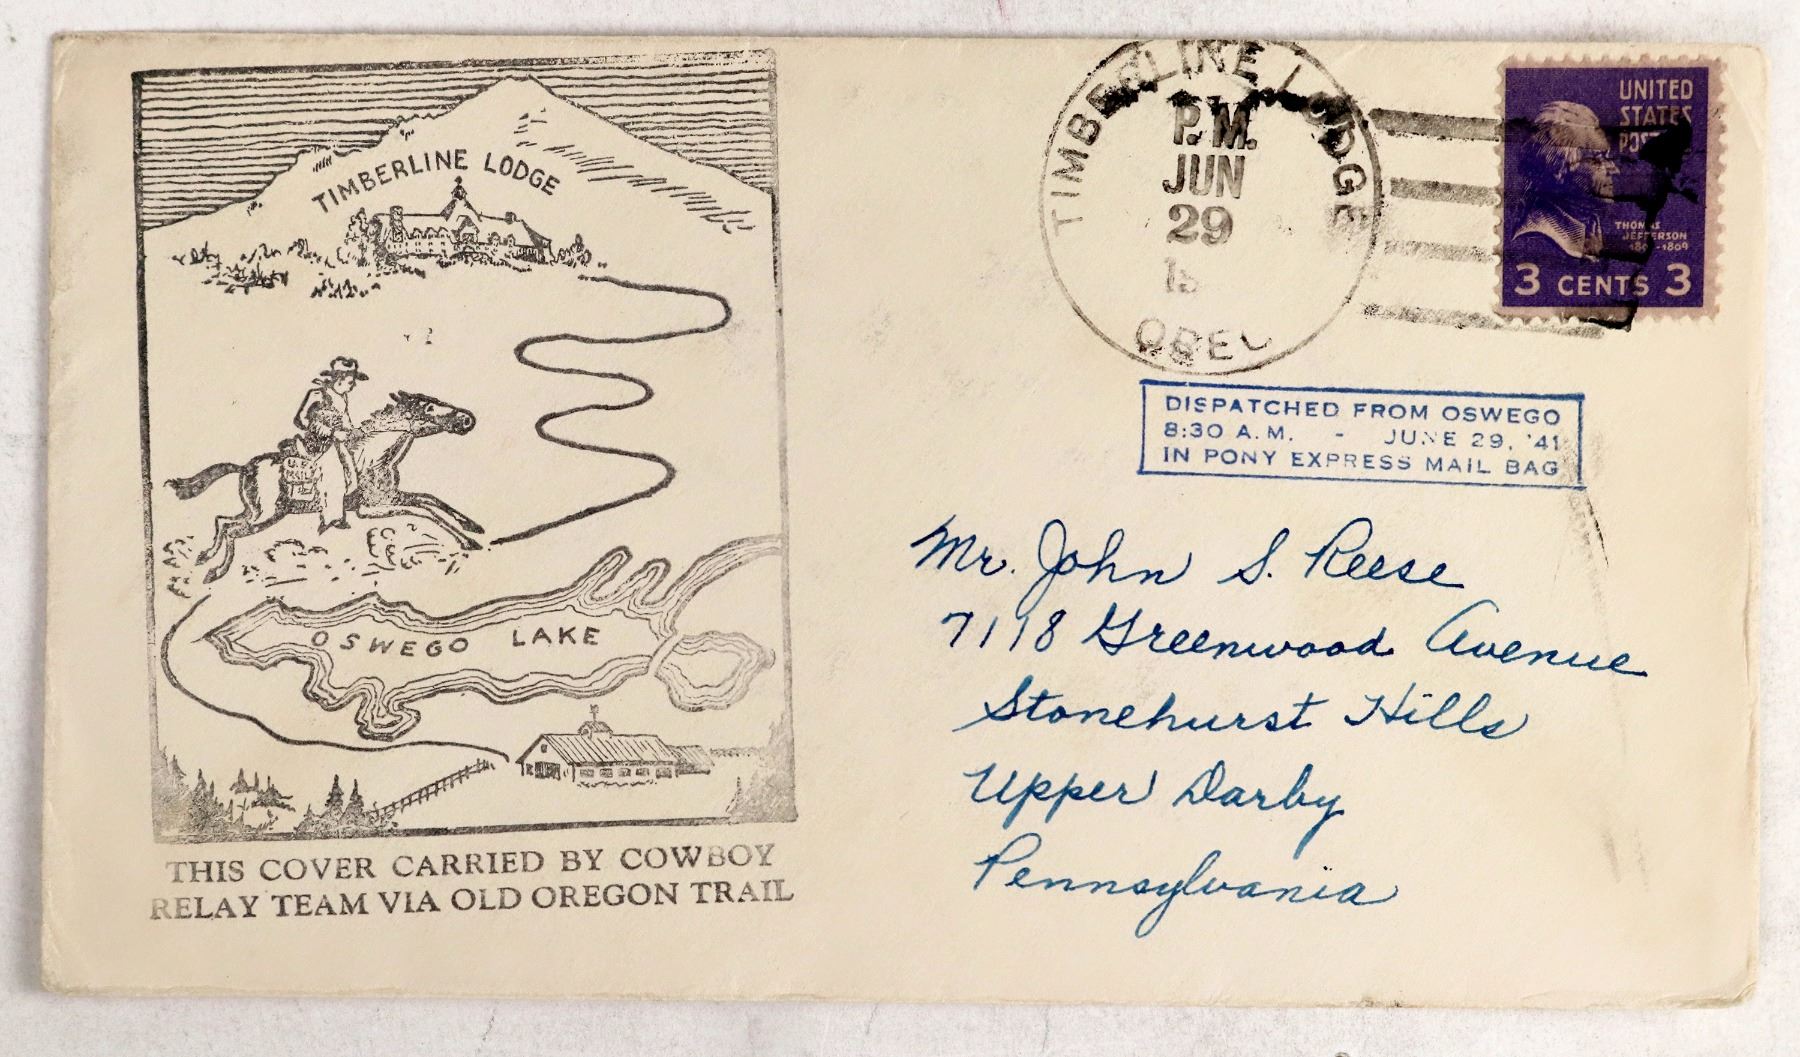 TIMBERLINE LODGE
U.S.
MAIL
OSWEGO LAKE
THIS COVER CARRIED BY COWBOY
RELAY TEAM VIA OLD OREGON TRAIL
TIMBERLINE LODGE
P.M.
JUN
29
OREG
UNITED
STATES
THOMAS
JEFFERSON
-1809
3 CENTS 3
DISPATCHED FROM OSWEGO
8:30 A.M. - JUNE 29, '41
IN PONY EXPRESS MAIL BAG
Mr. John S. Reese
7118 Greenwood Avenue
Stonehurst Hills
Upper Darby
Pennsylvania